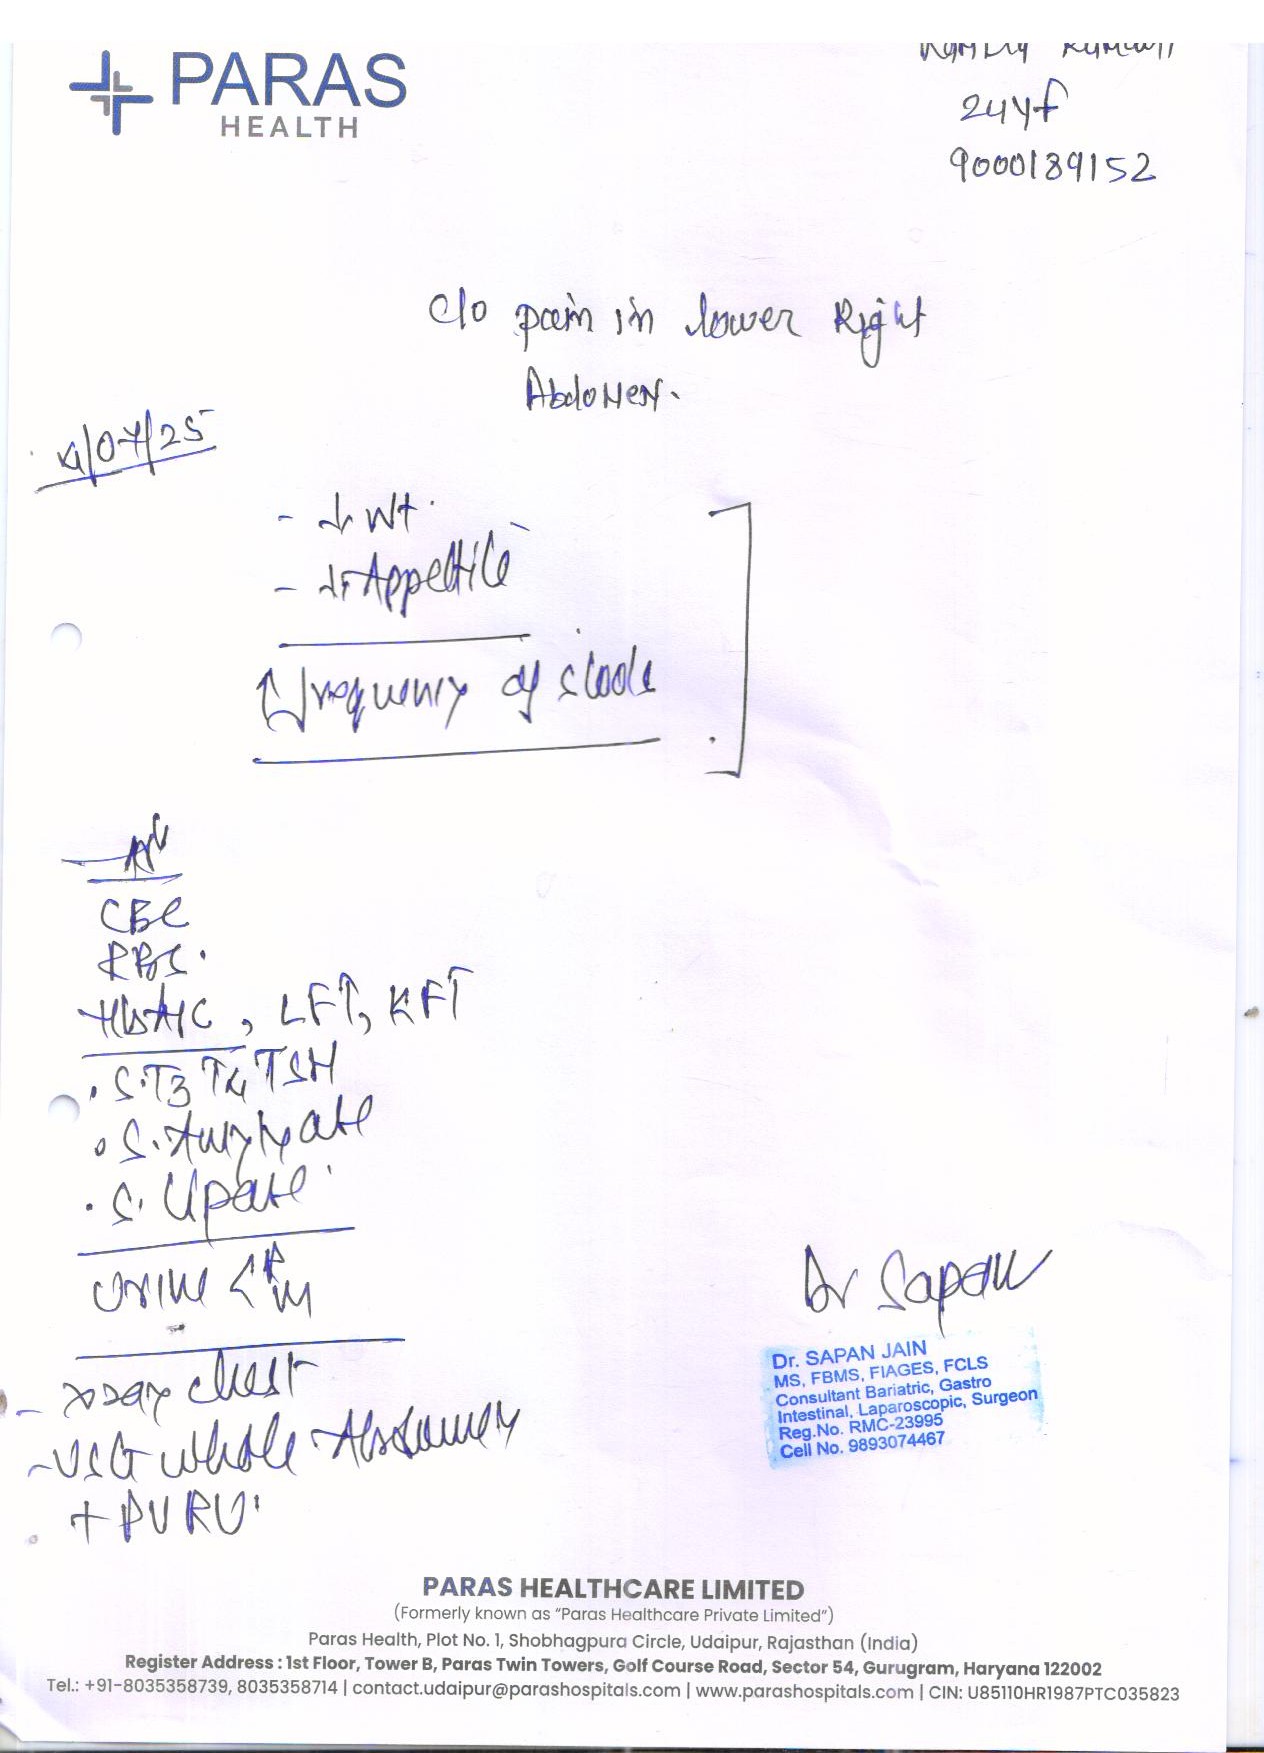 PARAS
HEALTH
Kumari
24yf
9000189152
C/o pain in lower Right
Abdomen.
4/07/25
- ↓ Wt.
- ↓ Appetite
↑ frequency of stools
CBC
RBS.
HbA1C, LFT, KFT
. S.T3 T4 TSH
. S. Amylase
. S. Lipase
Urine < R/M
- xray chest
- USG whole Abdomen
+ PVRU.
Dr Sapan
Dr. SAPAN JAIN
MS, FBMS, FIAGES, FCLS
Consultant Bariatric, Gastro
Intestinal, Laparoscopic, Surgeon
Reg.No. RMC-23995
Cell No. 9893074467
PARAS HEALTHCARE LIMITED
(Formerly known as "Paras Healthcare Private Limited")
Paras Health, Plot No. 1, Shobhagpura Circle, Udaipur, Rajasthan (India)
Register Address : 1st Floor, Tower B, Paras Twin Towers, Golf Course Road, Sector 54, Gurugram, Haryana 122002
Tel.: +91-8035358739, 8035358714 | contact.udaipur@parashospitals.com | www.parashospitals.com | CIN: U85110HR1987PTC035823